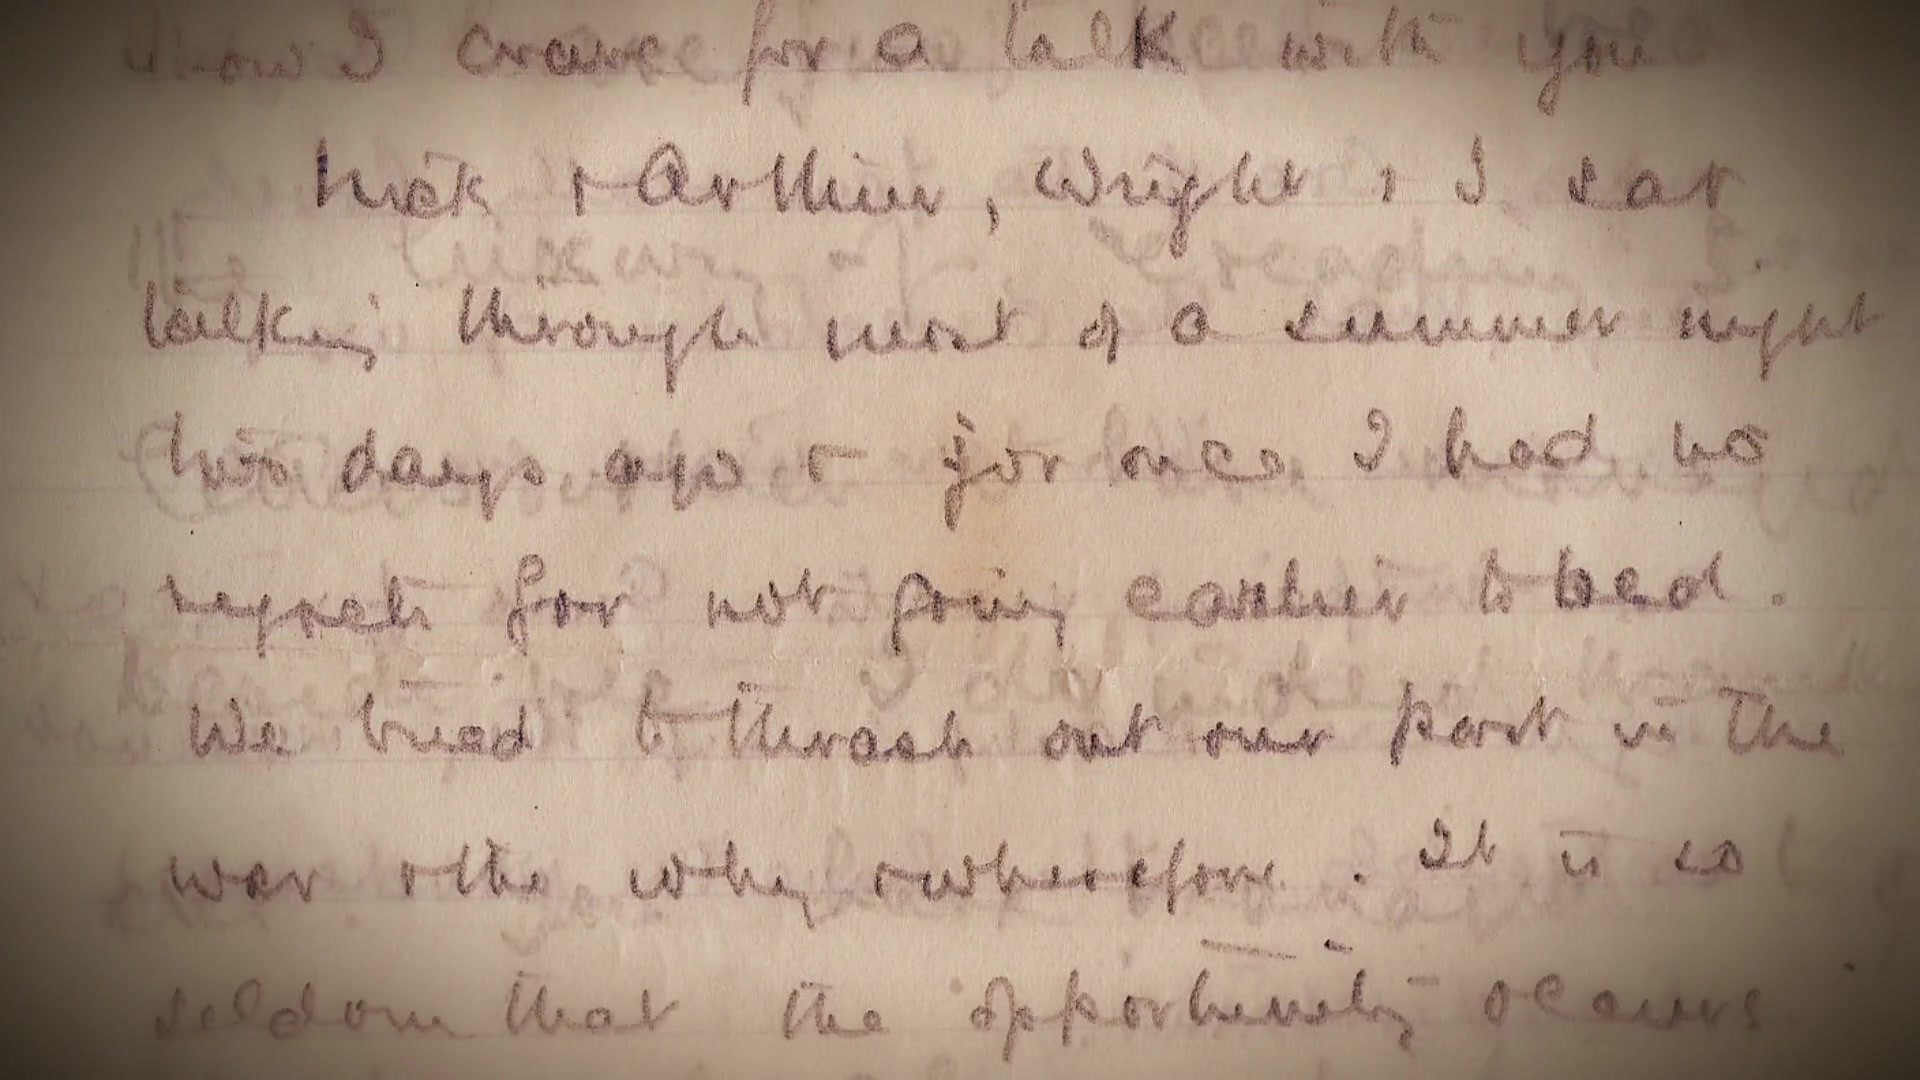 how I crave for a talk with you
Mick & Arthur, Wright & I sat
talking through most of a summer night
two days ago & for once I had no
regrets for not going earlier to bed.
We tried to thrash out our part in the
war & the why & wherefore. It is so
seldom that the opportunity occurs